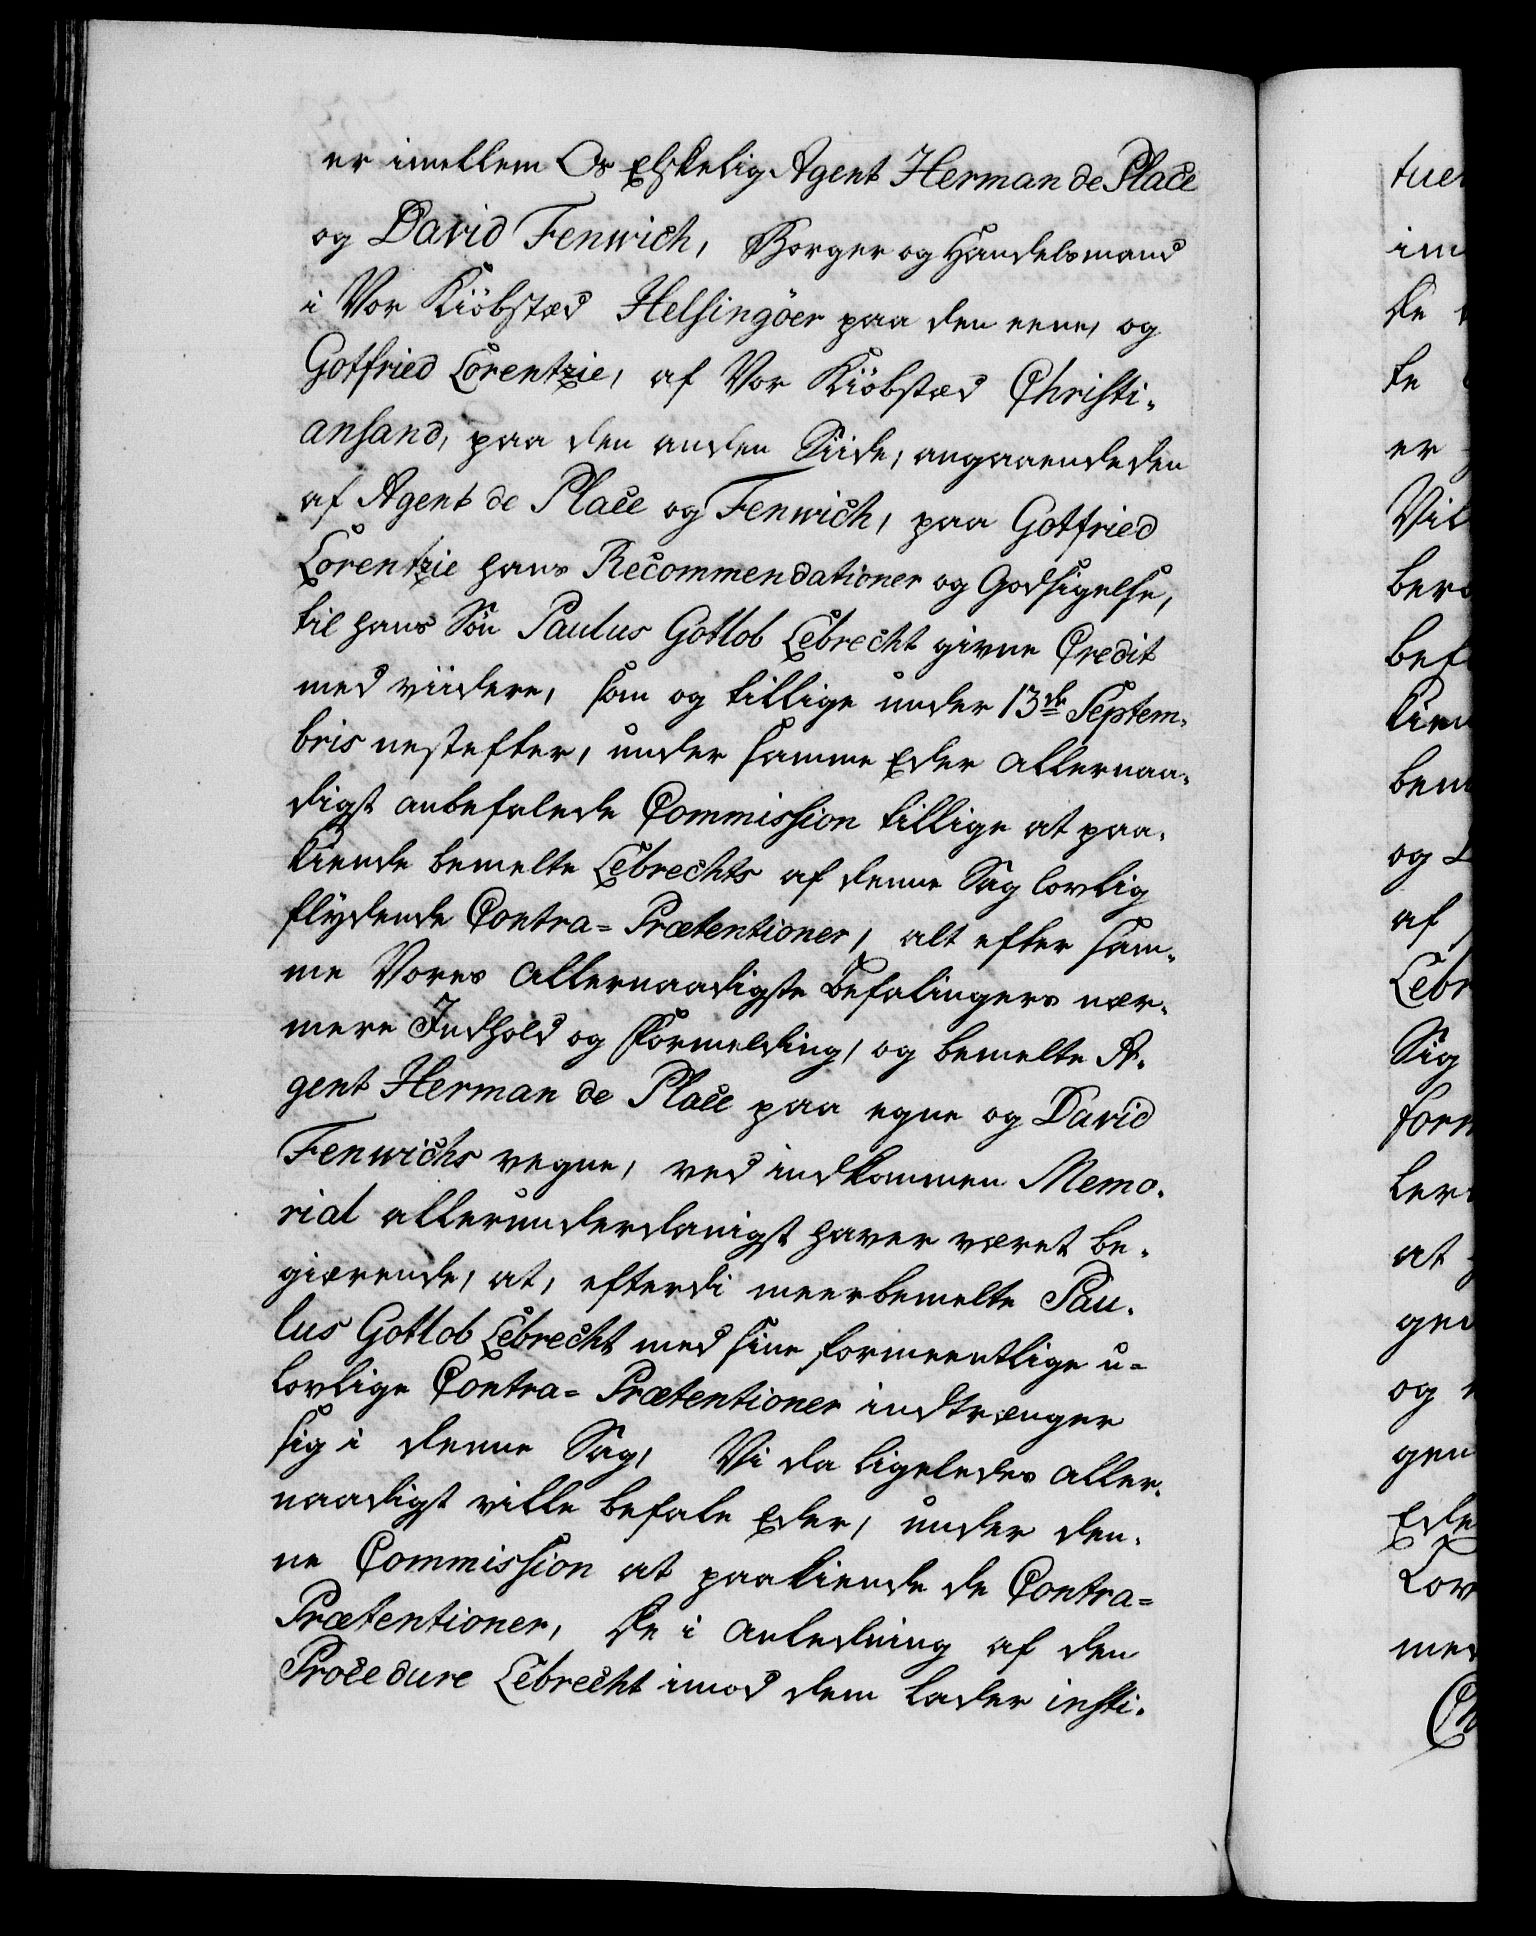 er imellem Os Elskelig Agent Herman de Place
og David Fenwich, Borger og Handelsmand
i Vor Kiöbstæd Helsingöer paa den eene, og
Gotfried Lorentzie, af Vor Kiöbstæd Christi-
ansand, paa den anden Siide, angaaende den
af Agent de Place og Fenwich, paa Gotfried
Lorentzie hans Recommendationer og Godsigelse,
til hans Søn Paulus Gotlob Lebrecht givne Credit
med viidere, som og tillige under 13de Septem-
bris nestefter, under samme Eder allernaa-
digst anbefalede Commission tillige at paa-
kiende bemelte Lebrechts af denne Sag lovlig
flydende Contra-Prætentioner, alt efter sam-
me Vores allernaadigste Befalingers nær-
mere Indhold og Formelding, og bemelte A-
gent Herman de Place paa egne og David
Fenwichs vegne, ved indkommen Memo-
rial allerunderdanigst haver været be-
giærende, at, efterdi meerbemelte Pau-
lus Gotlob Lebrecht med sine formeentlige u-
lovlige Contra-Prætentioner indtrænger
sig i denne Sag, Vi da ligeledes aller-
naadigst ville befale Eder, under den-
ne Commission at paakiende de Contra-
Prætentioner, de i anledning af den
Procedure Lebrecht imod dem lader insti-
tuer
im
de
te
er
Vil
ber
bef
kien
bem
og
af
Lebr
Sig
form
ler
at
gen
og
gen
Ede
Lov
med
Ch